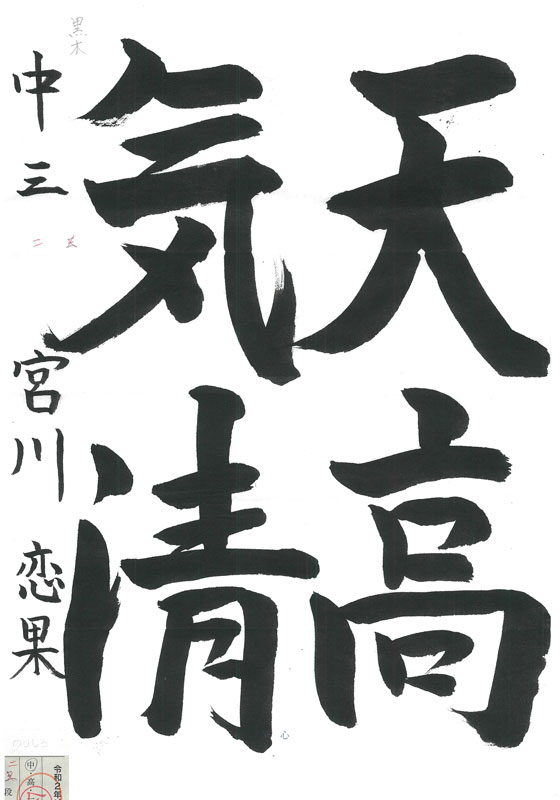 天高
気清
中三 宮川 恋果
黒木
二 美
心
令和2年
中・高
二 美 段